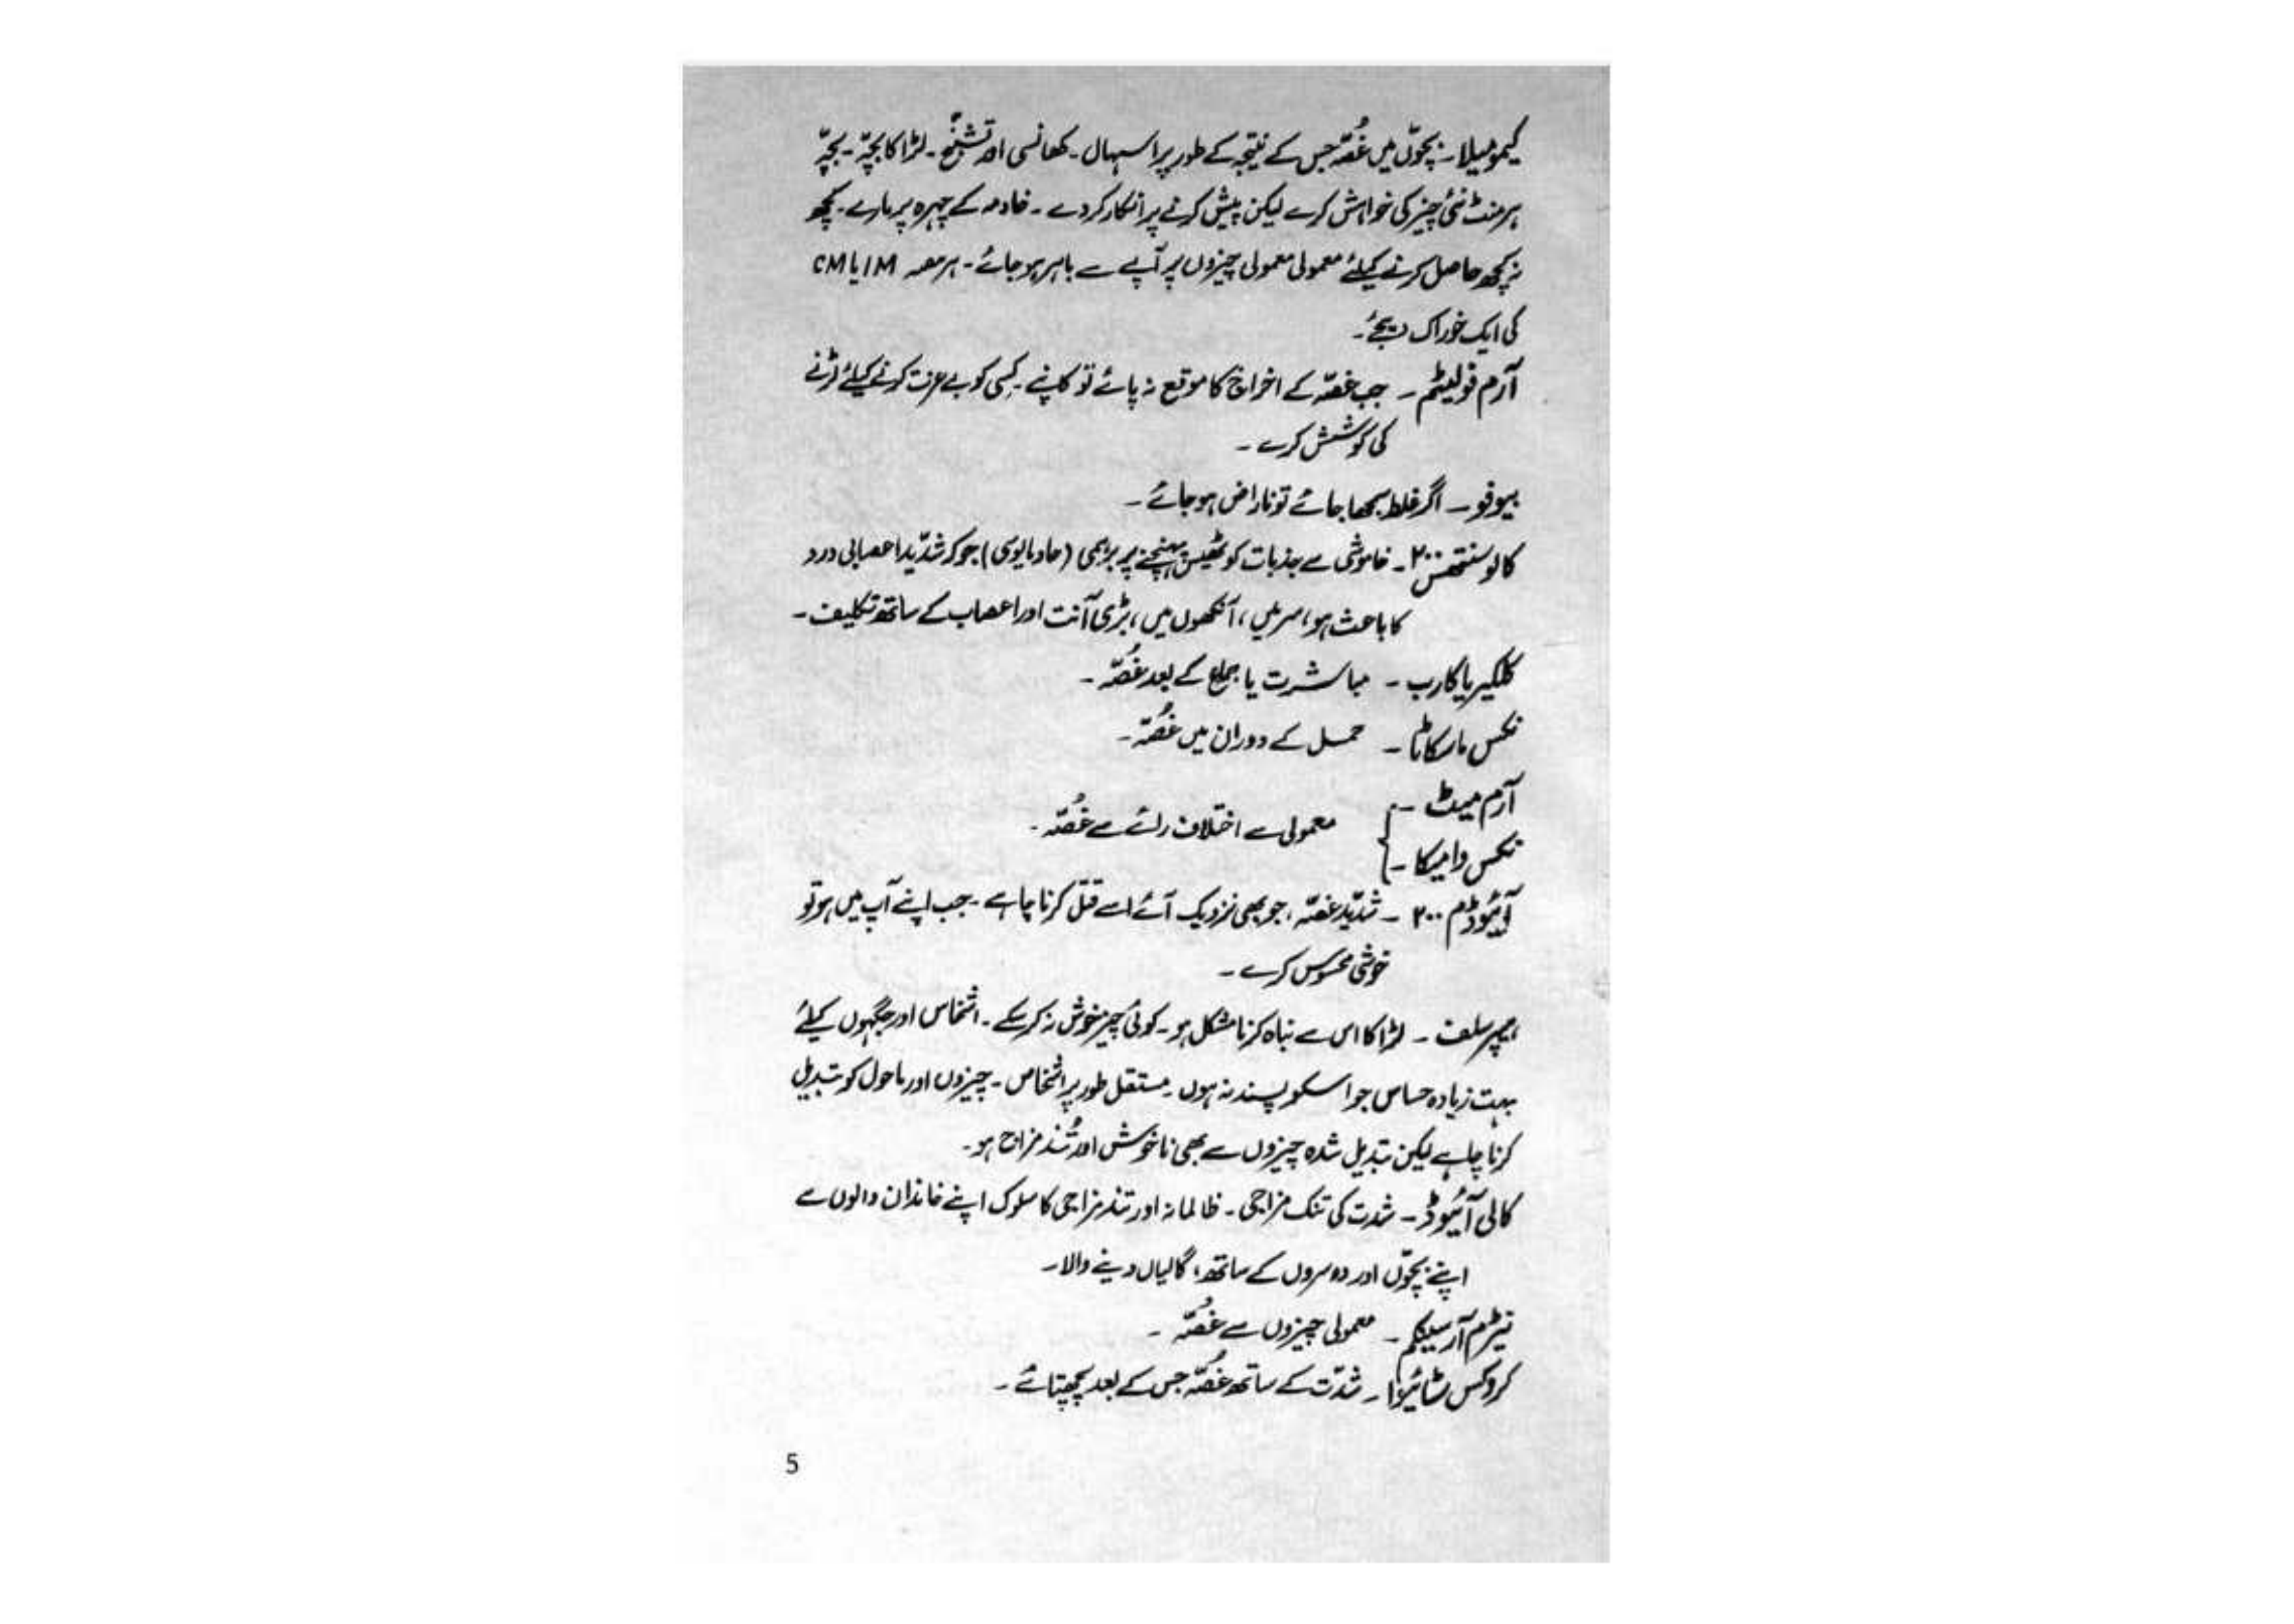 کیمومیلا ۔ بچّوں میں غُصّہ جس کے نتیجہ کے طور پر اسہال ۔ کھانسی اور تشنّج ۔ لڑاکا بچّہ ۔ بچّہ
ہر منٹ نئی چیز کی خواہش کرے لیکن پیش کرنے پر انکار کردے ۔ خادمہ کے چہرہ پر مارے ۔ کچھ
نہ کچھ حاصل کرنے کیلئے معمولی معمولی چیزوں پر آپے سے باہر ہو جائے ۔ ہر معہ 1M یا CM
کی ایک خوراک دیجئے ۔
آرم فولیٹم ۔ جب غصّہ کے اخراج کا موقع نہ پائے تو کانپے ۔ کسی کو بے عزت کرنے کیلئے لڑنے
کی کوشش کرے ۔
بیوفو ۔ اگر غلط سمجھا جائے تو ناراض ہو جائے ۔
کالوسنتھس ۲۰۰ ۔ خاموشی سے جذبات کو ٹھیس پہنچنے پر برہمی (حاد مایوسی) جو کہ شدّید اعصابی درد
کا باعث ہو، سر میں، آنکھوں میں، بڑی آنت اور اعصاب کے ساتھ تکلیف ۔
کلکیریا کارب ۔ مباشرت یا جماع کے بعد غُصّہ ۔
نکس ماسکاٹا ۔ حمل کے دوران میں غُصّہ ۔
آرم میٹ ۔
معمولی سے اختلاف رائے سے غُصّہ ۔
نکس وامیکا ۔
آئیوڈم ۲۰۰ ۔ شدّید غصّہ، جو بھی نزدیک آئے اسے قتل کرنا چاہے ۔ جب اپنے آپ میں ہو تو
خوشی محسوس کرے ۔
ہیپر سلف ۔ لڑاکا اس سے نباہ کرنا مشکل ہو ۔ کوئی چیز خوش نہ کر سکے ۔ اشخاص اور جگہوں کیلئے
بہت زیادہ حساس جو اسکو پسند نہ ہوں ۔ مستقل طور پر اشخاص ۔ چیزوں اور ماحول کو تبدیل
کرنا چاہے لیکن تبدیل شدہ چیزوں سے بھی ناخوش اور تُند مزاج ہو ۔
کالی آئیوڈ ۔ شدت کی تنک مزاجی ۔ ظالمانہ اور تند مزاجی کا سلوک اپنے خاندان والوں سے
اپنے بچّوں اور دوسروں کے ساتھ، گالیاں دینے والا ۔
نیٹرم آرسینیکم ۔ معمولی چیزوں سے غُصّہ ۔
کروکس سٹائیوا ۔ شدّت کے ساتھ غُصّہ جس کے بعد پچھتائے ۔
5